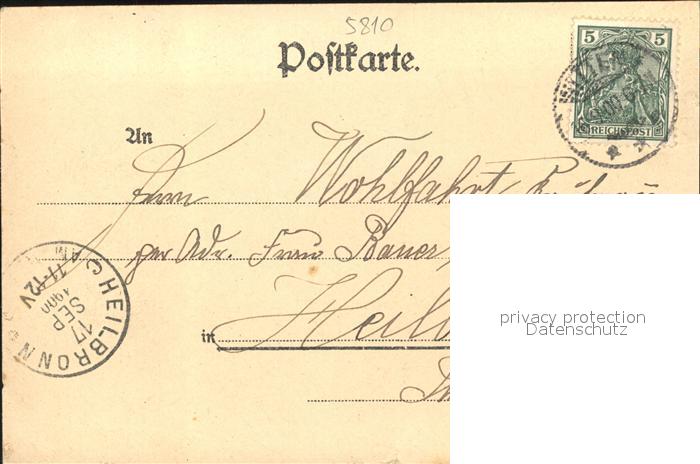 5810
Postkarte.
5 5
REICHSPOST
An
Herrn Wohlfahrt
per Adr. Frau Bauer
in Heil
HEILBRONN
17
SEP
1900
11-12V
privacy protection
Datenschutz